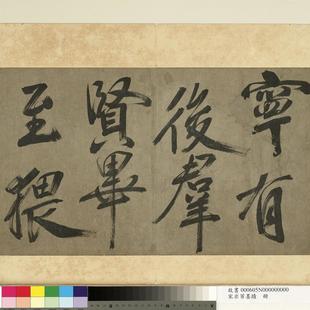 寧有
後羣
賢畢
至猥
故書 000605N000000000
墨蹟 冊